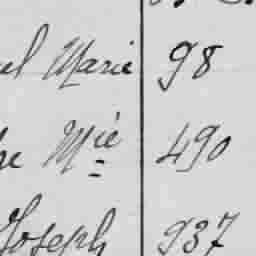 el Marie 98
Mie 490
Joseph 937